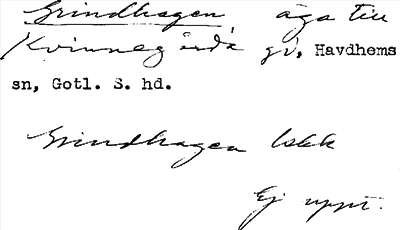 Grindhagen äga till
Kvinnegårda gd, Havdhems
sn, Gotl. S. hd.
Grindhagen
Ej uppt.